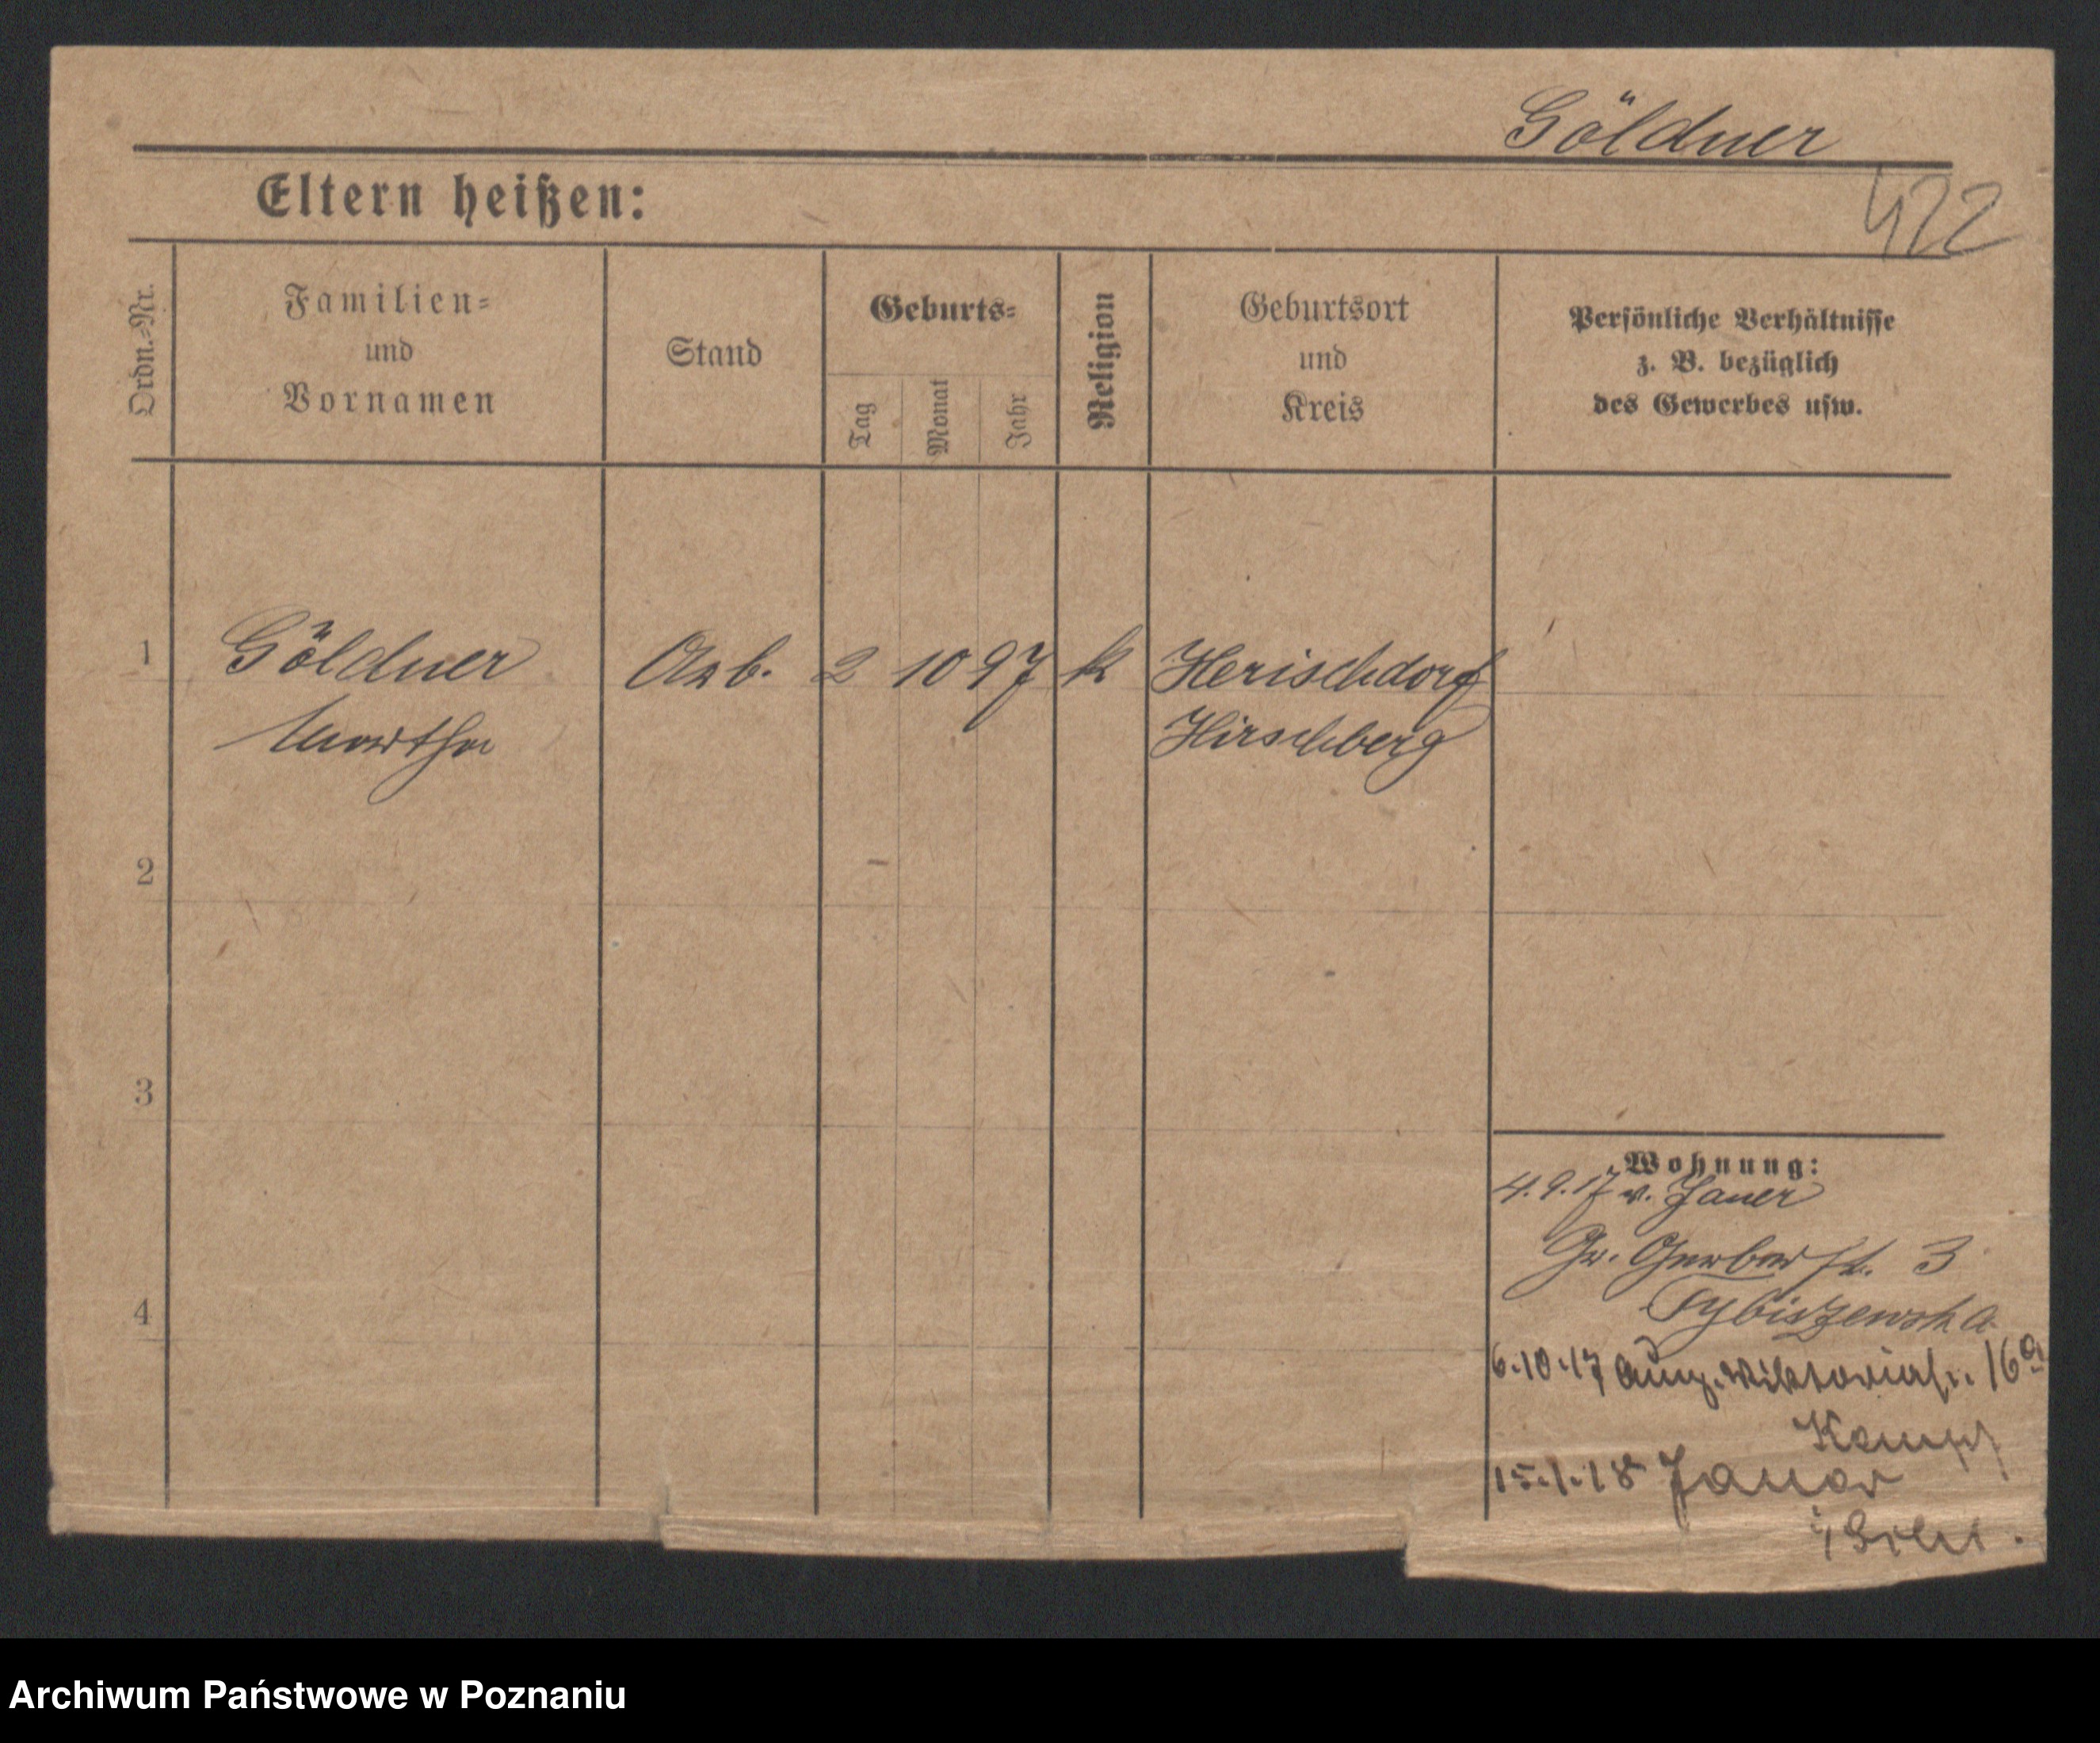 Göldner
422
Eltern heißen:
Ordn.-Nr.
Familien-
und
Vornamen
Stand
Geburts-
Tag
Monat
Jahr
Religion
Geburtsort
und
Kreis
Persönliche Verhältnisse
z. B. bezüglich
des Gewerbes usw.
1 Göldner Arb. 2 10 97 k Herischdorf
Martha Hirschberg
2
3
4
Wohnung:
4.9.17 v. Jauer
Gr. Gerberstr. 3
Tybiszewska
6.10.17 Aug. Viktoriastr. 16a
Kempf
15.1.18 Jauer
Archiwum Państwowe w Poznaniu